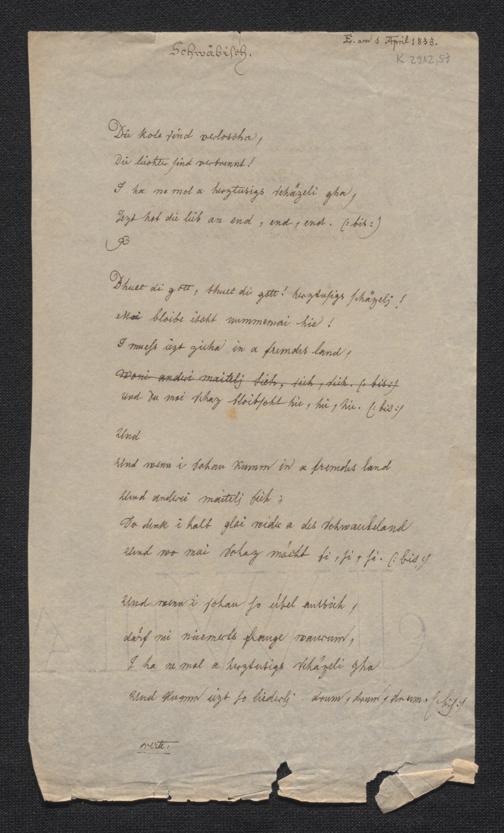 E. am 5 April 1838.
K 2912,53
Schwäbisch.
Die kole sind verloscha,
Die liechter sind verbrennt!
I ha ne mol a herztusigs schäzeli gha,
Jezt hat die lieb an end, end, end. (:bis:)
Bhuet di gott, bhuet di gott! herztusigs schäzeli!
Mai bleibe ischt nummemai hie!
I muess iezt zieha in a fremdes land,
Woni andri maitelj sieh, sieh, sieh. (:bis:)
und du mai schaz bleibscht hie, hie, hie. (:bis:)
Und
Und wenn i schau kumm in a fremdes land
Und anderi maitelj sieh;
Do denk i halt glai wider a des Schwaubeland
Und wo mai Schaz mächt si, si, si. (:bis:)
Und wenn i schau so übel aussieh,
därf mi niemerts frauge waurum,
I ha ne mol a herztusigs schäzeli gha
Und kumm iezt so liederlj drum, drum, drum. (:bis:)
verte.